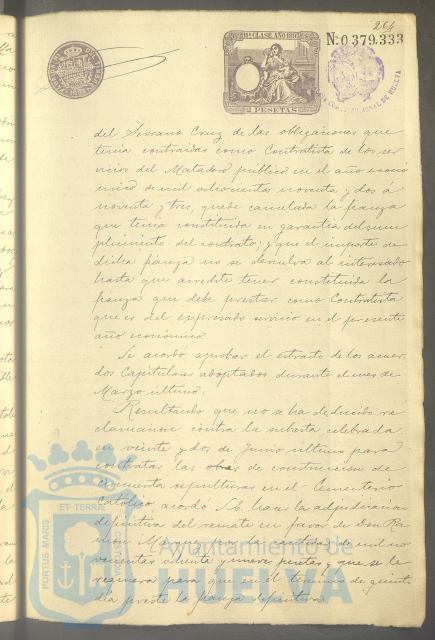 266
11ª CLASE. AÑO 1893
Nº 0.379.333
2 PESETAS
del Serrano Cruz de las obligaciones que
tenia contraidas como Contratista de los ser
vicios del Matadero público en el año econó
mico de mil ochocientos noventa y dos á
noventa y tres, quede cancelada la fianza
que tenia constituida en garantia del cum
plimiento del contrato; y que el importe de
dicha fianza no se devuelva al interesado
hasta que acredite tener constituida la
fianza que debe prestar como Contratista
que es del expresado servicio en el presente
año económico
Se acordó aprobar el estracto de los acuer
dos Capitulares adoptados durante el mes de
Marzo último.
Resultando que no se ha deducido re
clamacion contra la subasta celebrada
en veinte y dos de Junio último para
contratar las obras de construccion de
cincuenta sepulturas en el Cementerio
Católico, acordó S. E. hacer la adjudicacion
definitiva del remate en favor de Don Ra
mon por la cantidad de mil no
vecientas ochenta y nueve pesetas y que se le
requiera para que en el término de quinto
dia preste la fianza definitiva.
PORTUS MARIS
ET TERRÆ
CUSTODIA
Ayuntamiento de
HUELVA